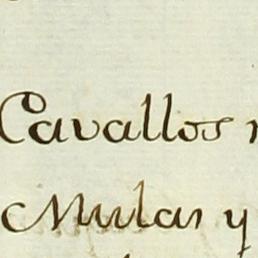 Cavallos
Mulas y